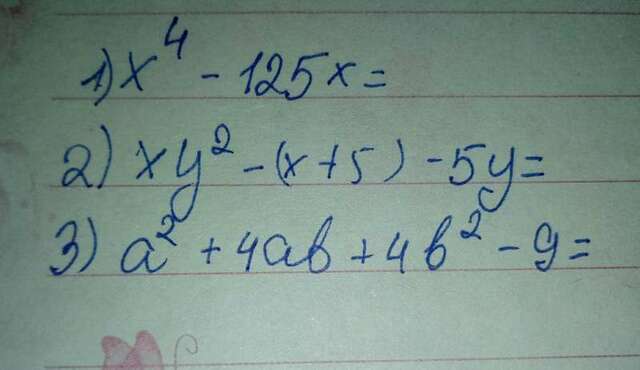 1) x⁴ - 125x =
2) xy² - (x+5) - 5y =
3) a² + 4ab + 4b² - 9 =